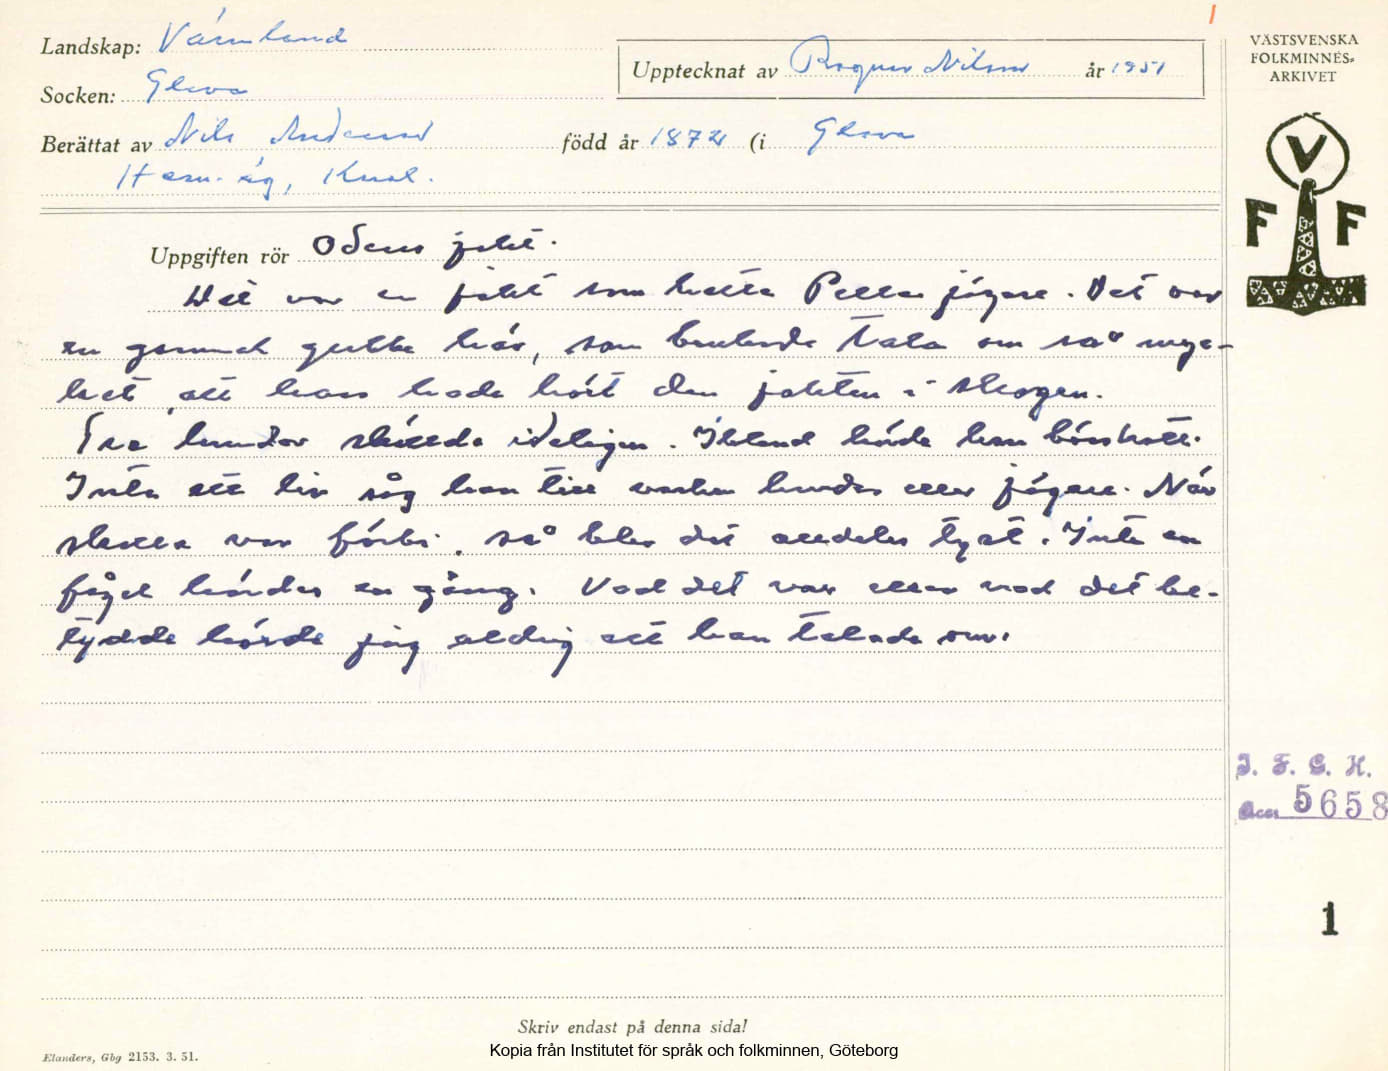 Landskap: Värmland
Socken: Glava
Upptecknat av Ragnar Nilsson år 1951
Berättat av Nils Andersson född år 1872 (i Glava
Hem. äg,
Uppgiften rör Odens jakt.
Det var en jakt som hette Pella jägare. Det var
en gammal gubbe här, som brukade tala om så myc-
ket, att han hade hört den jakten i skogen.
Tre hundar skällde ideligen. Ibland hörde han bösskott.
Inte ett liv såg han till varken hundar eller jägare. När
skallet var förbi, så blev det alldeles tyst. Inte en
fågel hördes en gång. Vad det var eller vad det be-
tydde hörde jag aldrig att han talade om.
VÄSTSVENSKA
FOLKMINNES-
ARKIVET
V
F F
I. F. G. H.
Acc 5658
1
Skriv endast på denna sida!
Elanders, Gbg 2153. 3. 51.
Kopia från Institutet för språk och folkminnen, Göteborg